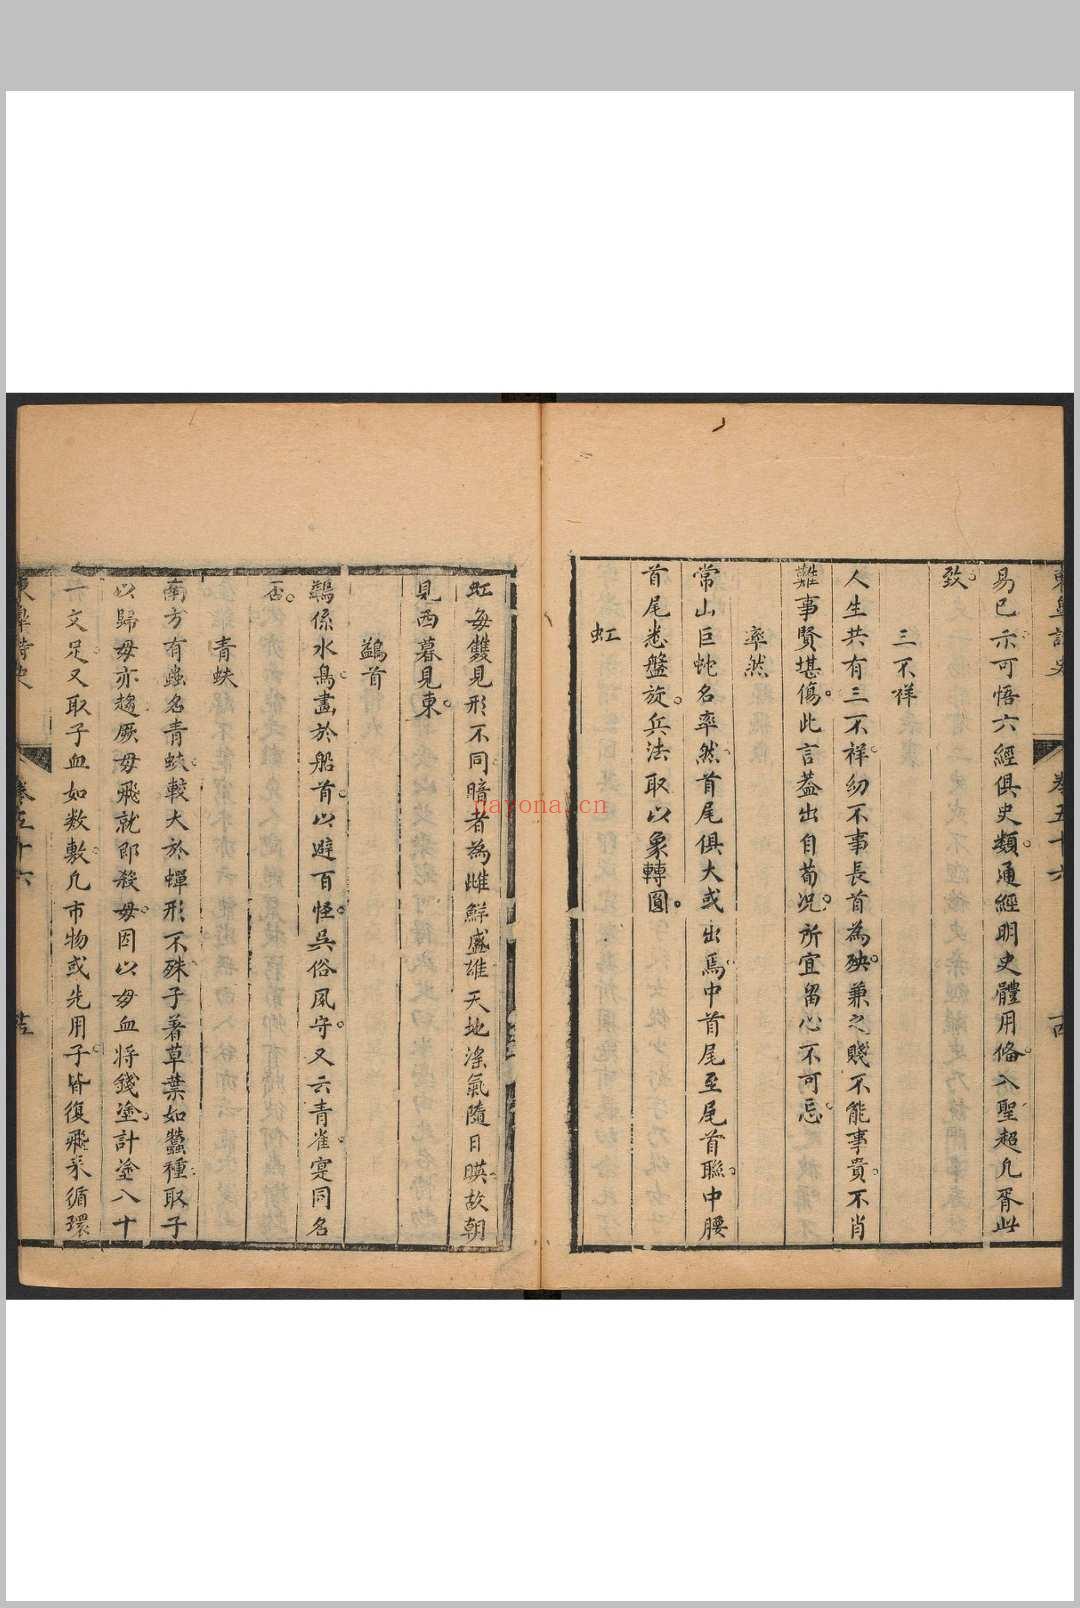 易已示可悟六經俱史類通經明史體用俻入聖超凡胥此
致
三不祥
人生共有三不祥幼不事長首為殃兼之賤不能事貴不肖
難事賢堪傷此言葢出自荀况所宜留心不可忘
率然
常山巨蛇名率然首尾俱大或出焉中首尾至尾首聯中腰
首尾悉盤旋兵法取以象轉圓
虹
虹每雙見形不同暗者為雌鮮盛雄天地滛氣隨日暎故朝
見西暮見東
鷁首
鷁係水鳥畵於船首以避百怪吳俗風守又云青雀寔同名
否
青蚨
南方有蟲名青蚨較大於蟬形不殊子著草葉如蠶種取子
以歸毋亦趨厥毋飛就即殺毋因以毋血將錢塗計塗八十
一文足又取子血如数敷凡市物或先用子皆復飛来循環
卷五十六
cayona.cn